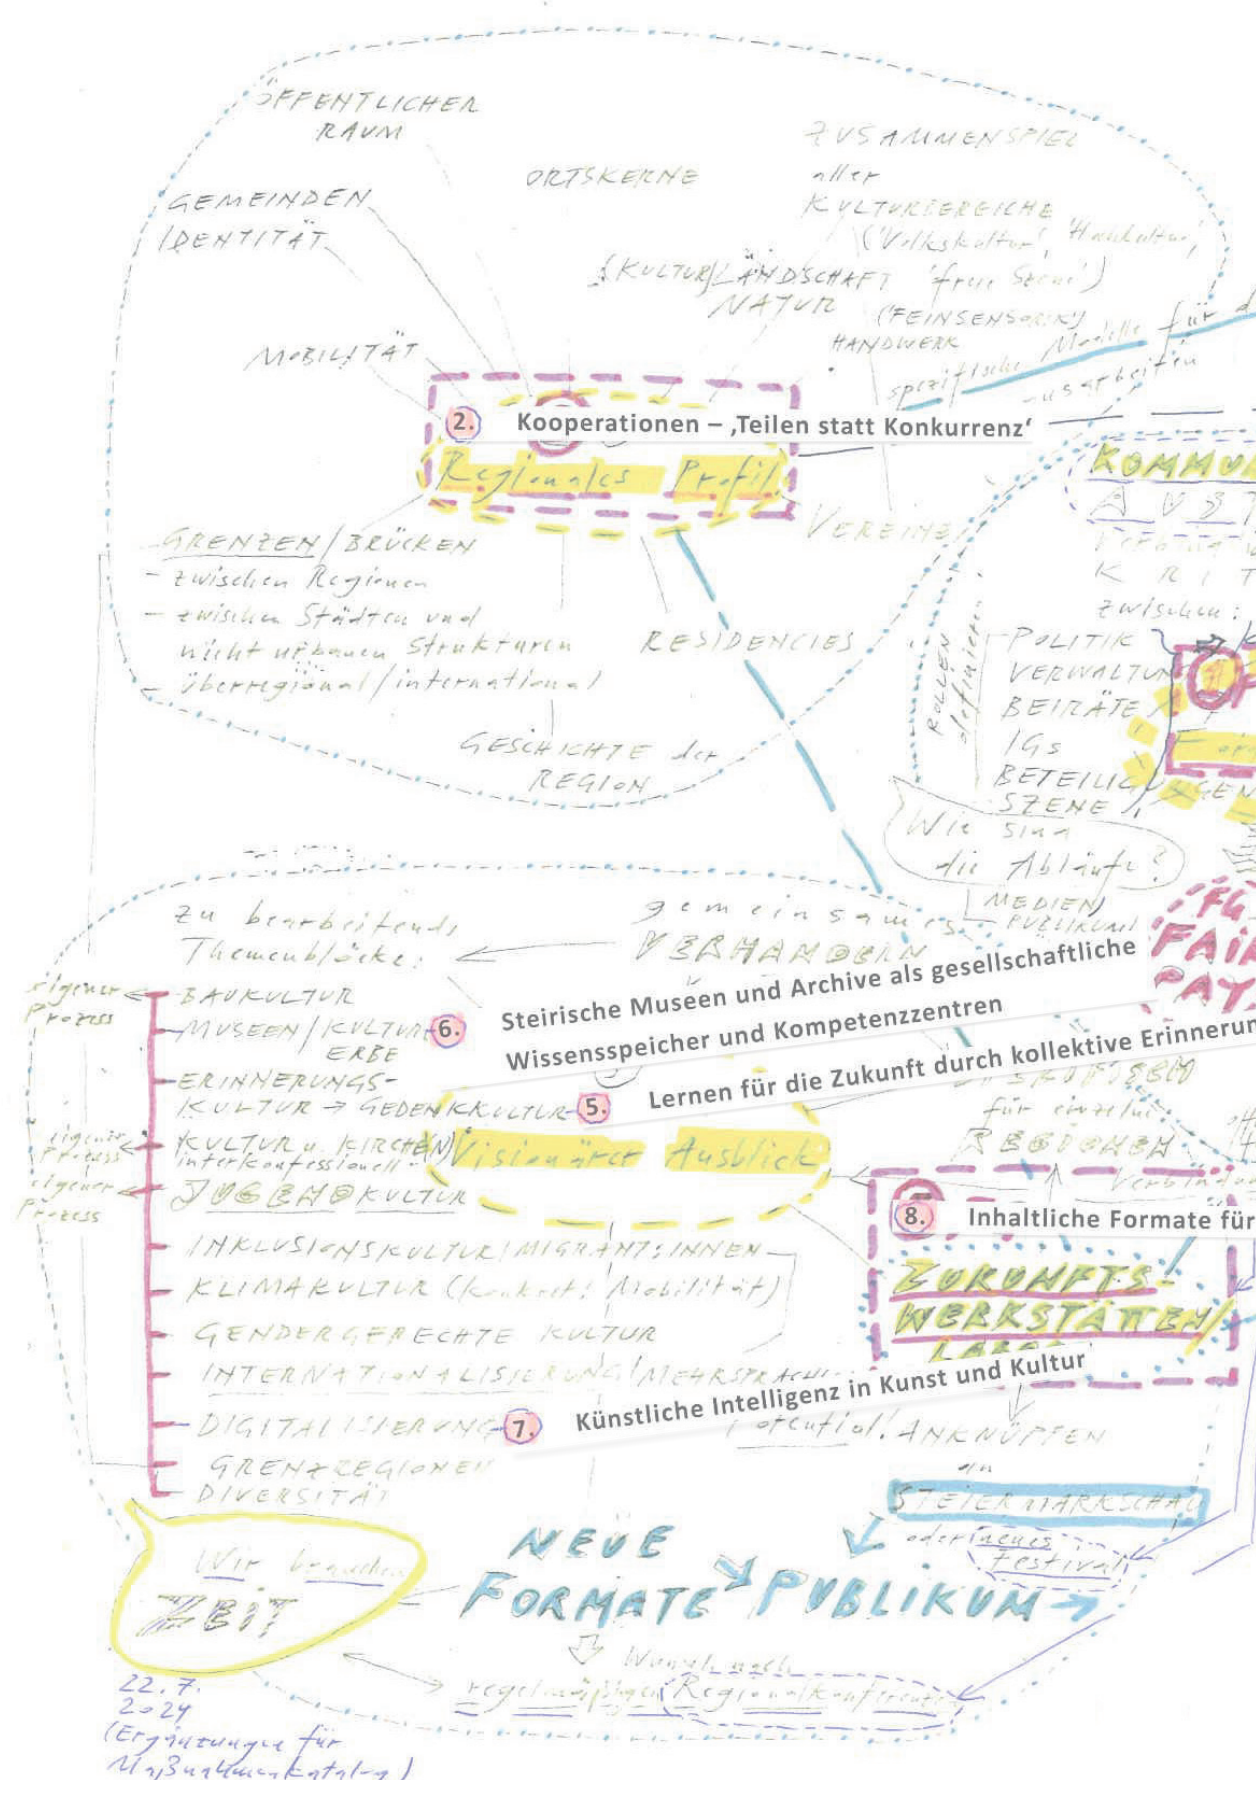 ÖFFENTLICHER
RAUM
ZUSAMMENSPIEL
aller
KULTURBEREICHE
('Volkskultur', 'Hochkultur',
'freie Szene')
ORTSKERNE
GEMEINDEN
IDENTITÄT
(KULTUR)LANDSCHAFT
NATUR
('FEINSENSORIK')
HANDWERK
spezifische Modelle für d
ausarbeiten
MOBILITÄT
2. Kooperationen – ‚Teilen statt Konkurrenz‘
Regionales Profil
KOMMU
AUST
VEREINE
GRENZEN/BRÜCKEN
- zwischen Regionen
- zwischen Städten und
nicht urbanen Strukturen
- überregional/international
RESIDENCIES
GESCHICHTE der
REGION
K R I T
zwischen:
ROLLEN
definieren
POLITIK
VERWALTUN
BEIRÄTE
IGs
BETEILIG
SZENE
Wie sind
die Abläufe?
MEDIEN
PUBLIKUM
FAIR
PAY
zu bearbeitende
Themenblöcke:
gemeinsames
VERHANDELN
eigener
Prozess
BAUKULTUR
MUSEEN/KULTUR-
ERBE
6. Steirische Museen und Archive als gesellschaftliche
Wissensspeicher und Kompetenzzentren
ERINNERUNGS-
KULTUR → GEDENKKULTUR
5. Lernen für die Zukunft durch kollektive Erinnerun
für einzelne
REGIONEN
Verbindun
eigener
Prozess
KULTUR u. KIRCHEN
interkonfessionell
Visionärer Ausblick
eigener
Prozess
JUGENDKULTUR
8. Inhaltliche Formate für
ZUKUNFTS-
WERKSTÄTTEN/
INKLUSIONSKULTUR/MIGRANT:INNEN
KLIMAKULTUR (konkret: Mobilität)
GENDERGERECHTE KULTUR
INTERNATIONALISIERUNG/MEHRSPRACHI-
DIGITALISIERUNG
7. Künstliche Intelligenz in Kunst und Kultur
Potential! ANKNÜPFEN
an
STEIERMARKSCHAU
oder neues
Festival
GRENZREGIONEN
DIVERSITÄT
Wir brauchen
ZEIT
NEUE
FORMATE
PUBLIKUM
Wunsch nach
regelmäßigen Regionalkonferenzen
22. 7.
2024
(Ergänzungen für
Maßnahmenkatalog)